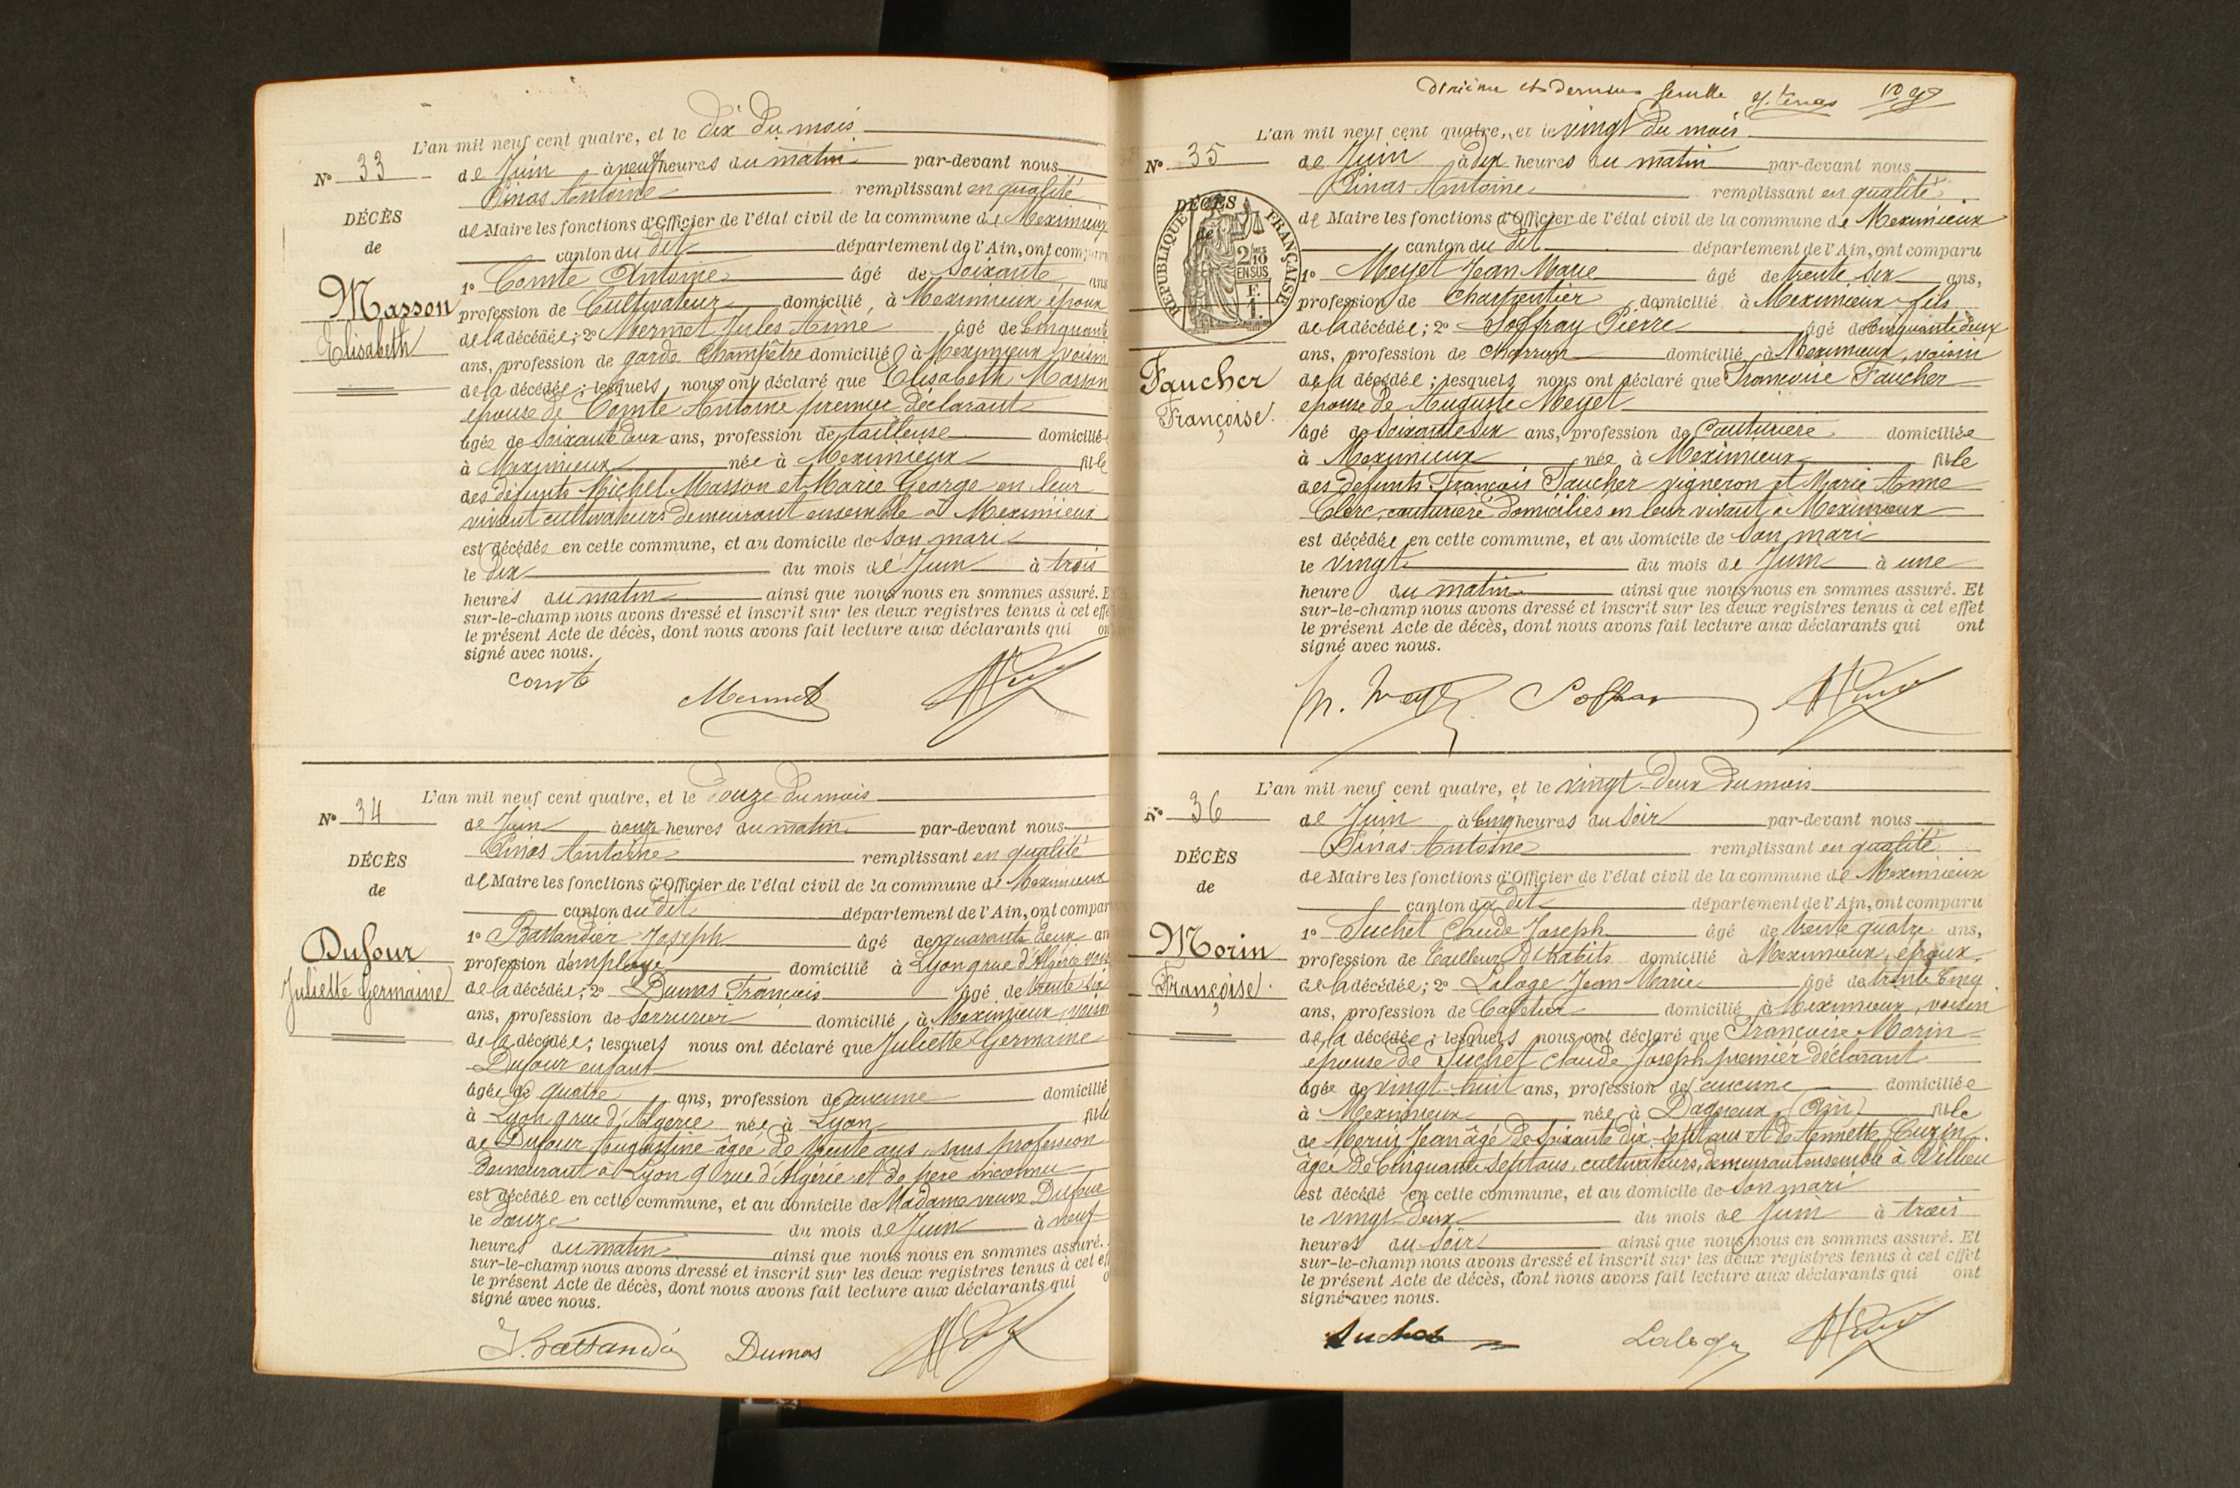 L'an mil neuf cent quatre, et le dix du mois
N° 33
de Juin à neuf heures du matin par-devant nous
Pinas Antoine remplissant en qualité
DÉCÈS
de Maire les fonctions d'Officier de l'état civil de la commune de Meximieux
de
canton du dit département de l'Ain, ont comparu
1° Comte Antoine âgé de soixante ans
Masson
profession de Cultivateur domicilié à Meximieux époux
Elisabeth
de la décédée; 2° Mermet Jules Aimé âgé de Cinquante
ans, profession de garde Champêtre domicilié à Meximieux voisin
de la décédée; lesquels nous ont déclaré que Elisabeth Masson
épouse de Comte Antoine premier déclarant
âgée de soixante deux ans, profession de tailleuse domiciliée
à Meximieux née à Meximieux fille
des défunts Michel Masson et Marie George en leur
vivant cultivateurs demeurant ensemble à Meximieux
est décédée en cette commune, et au domicile de son mari
le dix du mois de Juin à trois
heures du matin ainsi que nous nous en sommes assuré. Et
sur-le-champ nous avons dressé et inscrit sur les deux registres tenus à cet effe
le présent Acte de décès, dont nous avons fait lecture aux déclarants qui on
signé avec nous.
Comte Mermet
L'an mil neuf cent quatre, et le douze du mois
N° 34
de Juin à onze heures du matin par-devant nous
Pinas Antoine remplissant en qualité
DÉCÈS
de Maire les fonctions d'Officier de l'état civil de la commune de Meximieux
de
canton du dit département de l'Ain, ont compar
Dufour
1° Battandier Joseph âgé de quarante deux an
Juliette Germaine
profession d'employé domicilié à Lyon 9 rue d'Algérie voisin
de la décédée; 2° Dumas François âgé de trente six
ans, profession de serrurier domicilié à Meximieux voisin
de la décédée; lesquels nous ont déclaré que Juliette Germaine
Dufour enfant
âgée de quatre ans, profession de aucune domicilié
à Lyon 9 rue d'Algérie née à Lyon fille
de Dufour Augustine âgée de trente ans, sans profession
demeurant à Lyon 9 rue d'Algérie et de père inconnu
est décédée en cette commune, et au domicile de Madame veuve Dufour
le douze du mois de Juin à neuf
heures du matin ainsi que nous nous en sommes assuré.
sur-le-champ nous avons dressé et inscrit sur les deux registres tenus à cet eff
le présent Acte de décès, dont nous avons fait lecture aux déclarants qui o
signé avec nous.
J. Battandier Dumas
dixième et dernier feuille
L'an mil neuf cent quatre, et le vingt du mois
N° 35
de Juin à dix heures du matin par-devant nous
Pinas Antoine remplissant en qualité
DÉCÈS
de
RÉPUBLIQUE FRANÇAISE
2/10 EN SUS
de Maire les fonctions d'Officier de l'état civil de la commune de Meximieux
canton du dit département de l'Ain, ont comparu
1° Meyet Jean Marie âgé de trente six ans,
profession de Charpentier domicilié à Meximieux fils
de la décédée; 2° Soffray Pierre âgé de Cinquante deux
ans, profession de Charron domicilié à Meximieux, voisin
Faucher
Françoise
de la décédée; lesquels nous ont déclaré que Françoise Faucher
épouse de Auguste Meyet
âgé de soixante six ans, profession de Couturière domiciliée
à Meximieux née à Meximieux fille
des défunts François Faucher vigneron et Marie Anne
Clerc couturière domiciliés en leur vivant à Meximieux
est décédée en cette commune, et au domicile de son mari
le vingt du mois de Juin à une
heure du matin ainsi que nous nous en sommes assuré. Et
sur-le-champ nous avons dressé et inscrit sur les deux registres tenus à cet effet
le présent Acte de décès, dont nous avons fait lecture aux déclarants qui ont
signé avec nous.
L'an mil neuf cent quatre, et le vingt-deux du mois
N° 36
de Juin à Cinq heures du soir par-devant nous
Pinas Antoine remplissant en qualité
DÉCÈS
de Maire les fonctions d'Officier de l'état civil de la commune de Meximieux
de
canton du dit département de l'Ain, ont comparu
Morin
1° Suchet Claude Joseph âgé de trente quatre ans,
Françoise
profession de Tailleur d'habits domicilié à Meximieux, époux
de la décédée; 2° Lalage Jean Marie âgé de trente cinq
ans, profession de Cafetier domicilié à Meximieux, voisin
de la décédée; lesquels nous ont déclaré que Françoise Morin
épouse de Suchet Claude Joseph premier déclarant
âgée de vingt-huit ans, profession de aucune domiciliée
à Meximieux née à Dagneux (Ain) fille
de Morin Jean âgé de soixante dix-sept ans et de Annette Cuzin
âgée de Cinquante sept ans, cultivateurs, demeurant ensemble à Villieu
est décédé en cette commune, et au domicile de son mari
le vingt-deux du mois de Juin à trois
heures du soir ainsi que nous nous en sommes assuré. Et
sur-le-champ nous avons dressé et inscrit sur les deux registres tenus à cet effet
le présent Acte de décès, dont nous avons fait lecture aux déclarants qui ont
signé avec nous.
Suchet Lalage